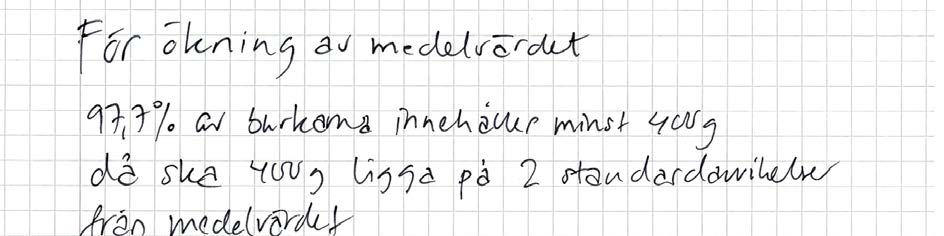 För ökning av medelvärdet
97,7% av burkarna innehåller minst 400g
då ska 400g ligga på 2 standardavvikelser
från medelvärdet